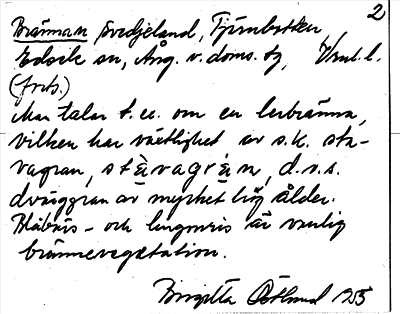 2
Bränman, Svedjeland, Tjärnbotten
Edsele sn, Ång. v. doms. tg,
(forts.)
Man talar t. ex. om en lerbränna,
vilken har växtlighet av s.k. sta-
vagran, stàvagràn, d.v.s.
dvärggran av mycket hög ålder.
Blåbärs- och lingonris är vanlig
brännevegetation.
Birgitta Östlund 1955